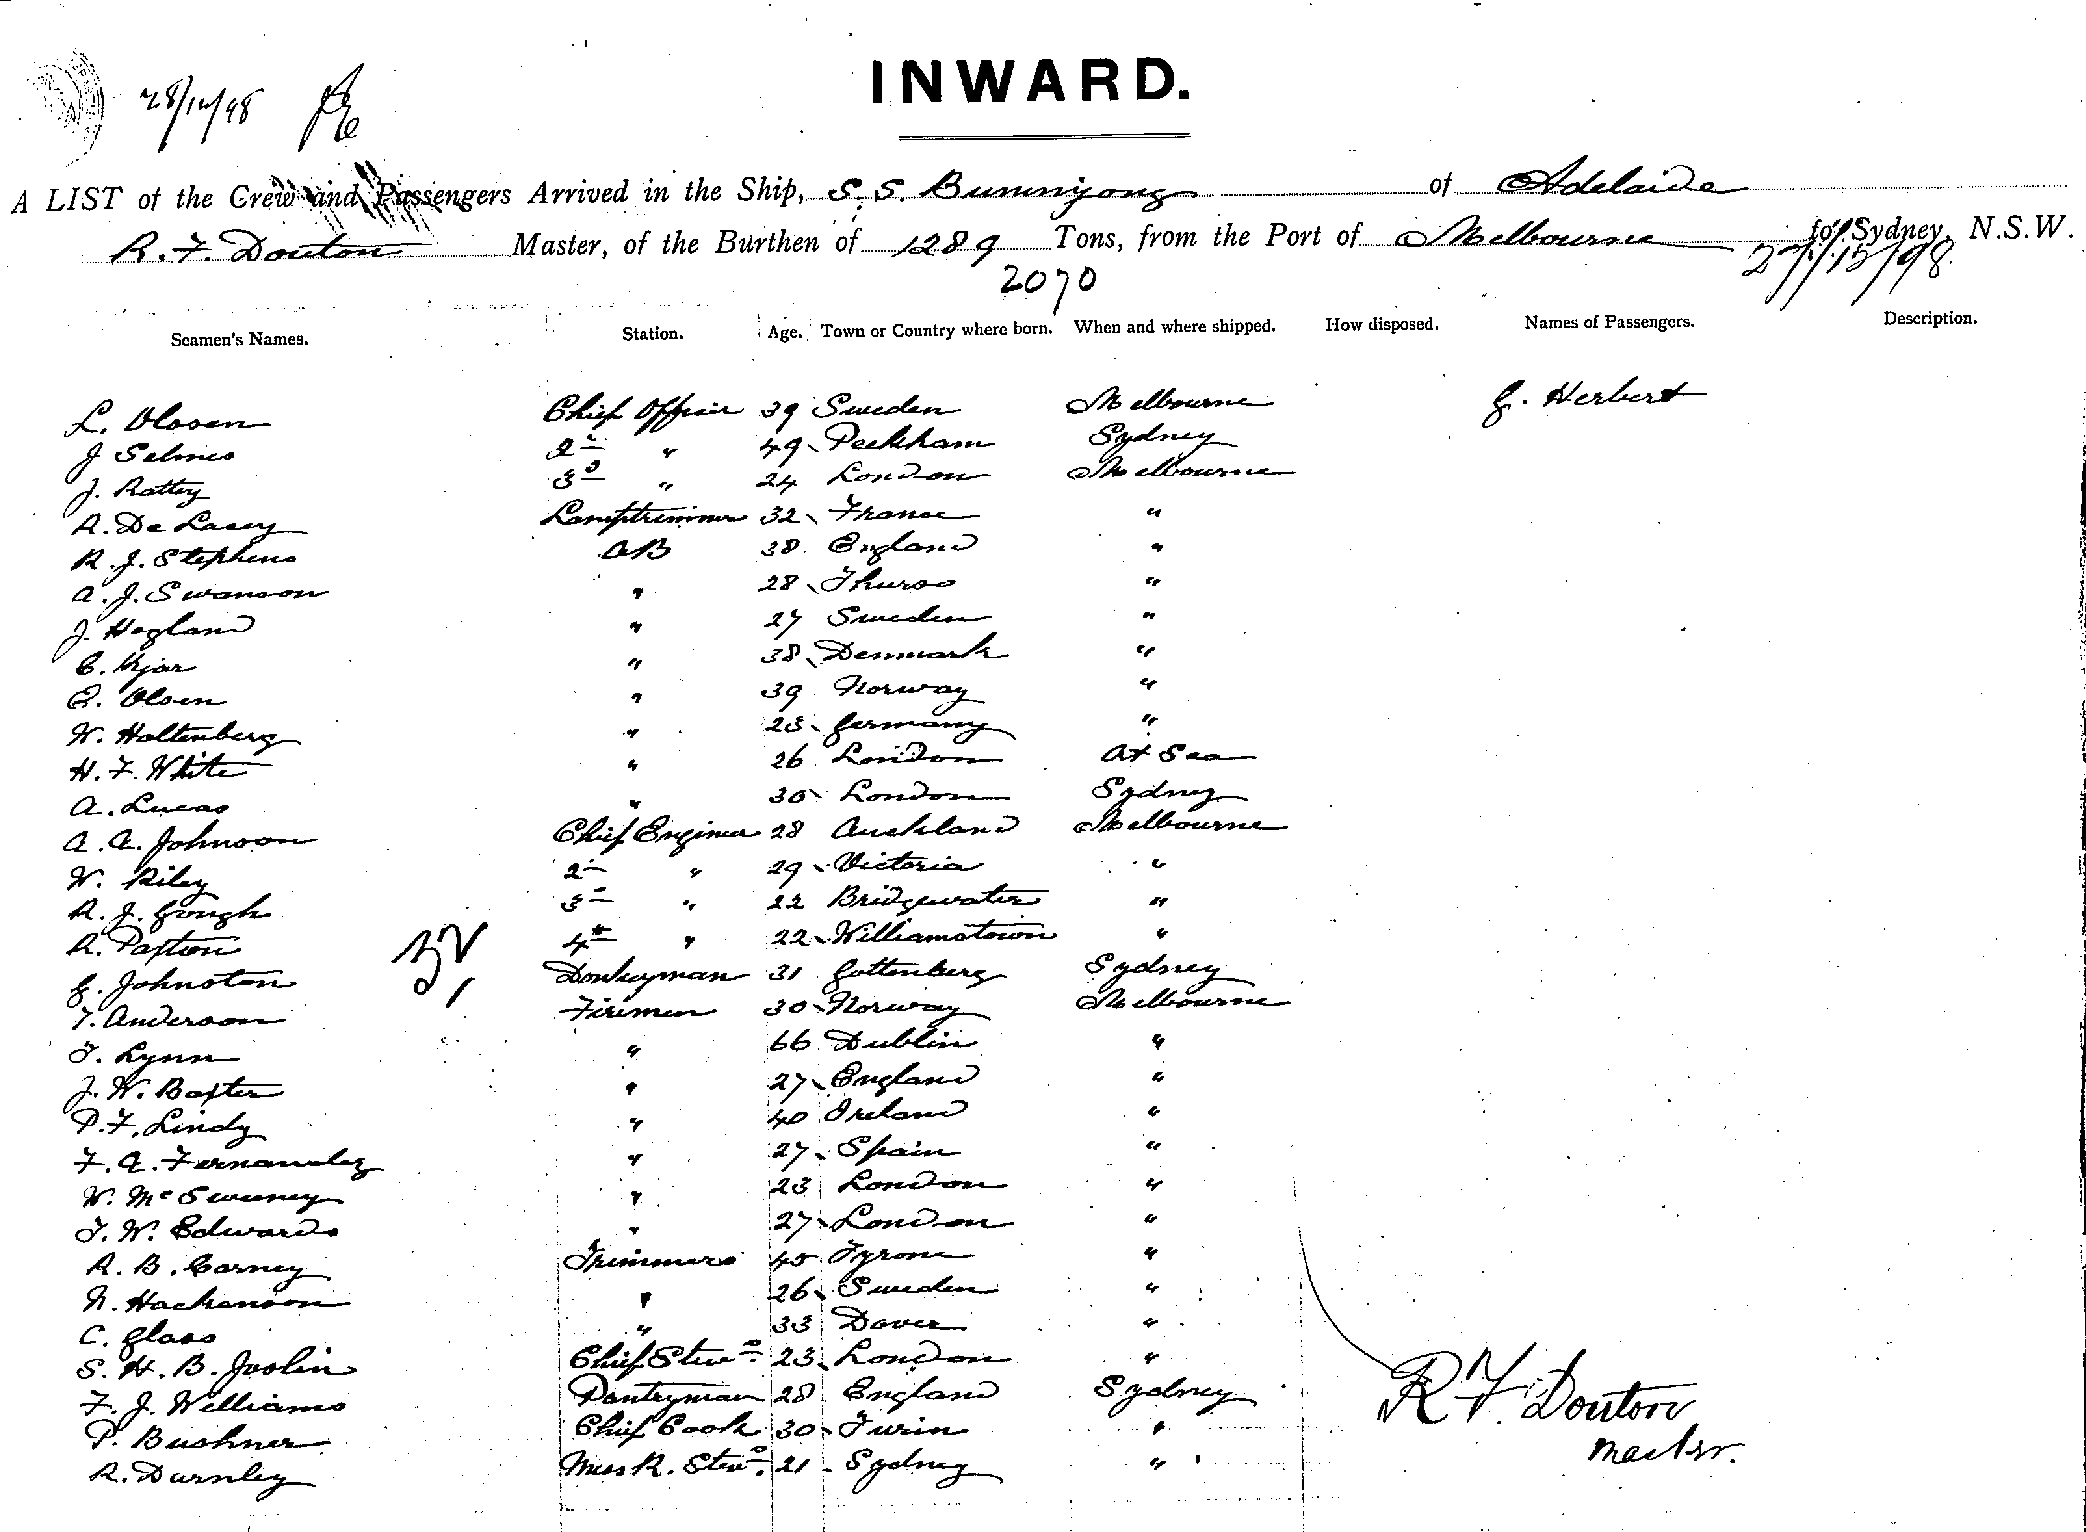 INWARD.
28/12/98
A LIST of the Crew and Passengers Arrived in the Ship, S.S. Bunniyong of Adelaide
R. F. Douton Master, of the Burthen of 1289 Tons, from the Port of Melbourne to Sydney, N.S.W.
2070 27/12/98
Seamen's Names. Station. Age. Town or Country where born. When and where shipped. How disposed. Names of Passengers. Description.
L. Olosen Chief Officer 39 Sweden Melbourne G. Herbert
J Selmes 2nd " 49 Peckham Sydney
J. Rattey 3d " 24 London Melbourne
A. De Lacey Lamptrimmer 32 France "
R. J. Stephens AB 38 England "
A. J. Swanson " 28 Thurso "
J. Hegland " 27 Sweden "
C. Kjar " 38 Denmark "
E. Olsen " 39 Norway "
W. Holtenberg " 23 Germany "
H. F. White " 26 London At Sea
A. Lucas " 30 London Sydney
A. A. Johnson Chief Engineer 28 Auckland Melbourne
W. Riley 2 " 29 Victoria "
R. J. Gough 3 " 22 Bridgewater "
R. Paxton 4th " 22 Williamstown "
G. Johnston Donkeyman 31 Gottenberg Sydney
T. Anderson Firemen 30 Norway Melbourne
T. Lynn " 66 Dublin "
J. W. Baxter " 27 England "
P. F. Lindy " 40 Ireland "
F. A. Fernandez " 27 Spain "
W. McSweeney " 23 London "
T. W. Edwards " 27 London "
R. B. Carney Trimmers 45 Tyrone "
N. Hackenson " 26 Sweden "
C. Glass " 33 Dover "
S. H. B. Joslin Chief Stewd. 23 London "
F. J. Williams Pantryman 28 England Sydney
P. Bushner Chief Cook 30 Turin "
R. Durnley Mess R. Stewd. 21 Sydney "
R F. Douton
Master.